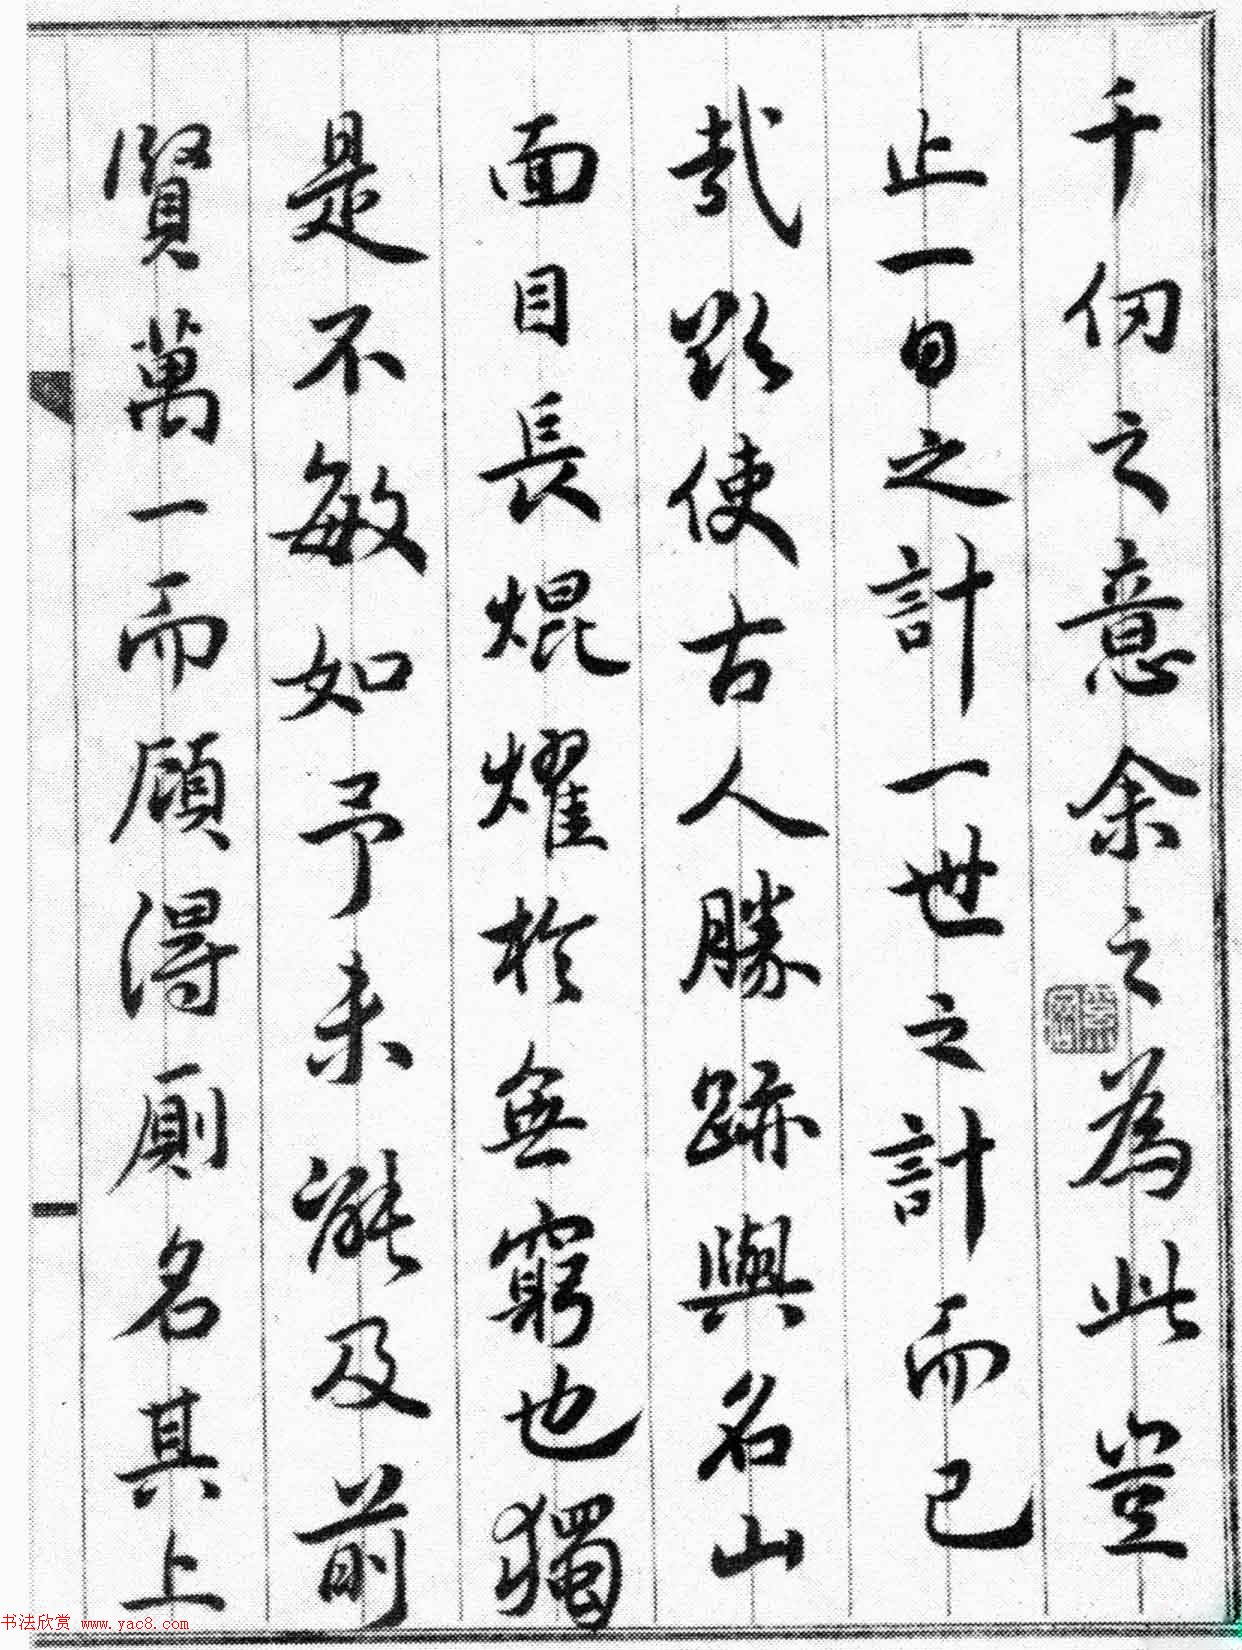 千仞之意余之為此豈
止一日之計一世之計而已
哉欲使古人勝跡與名山
面目長焜燿於無窮也獨
是不敏如予未能及前
賢萬一而顧得厠名其上
书法欣赏 www.yac8.com